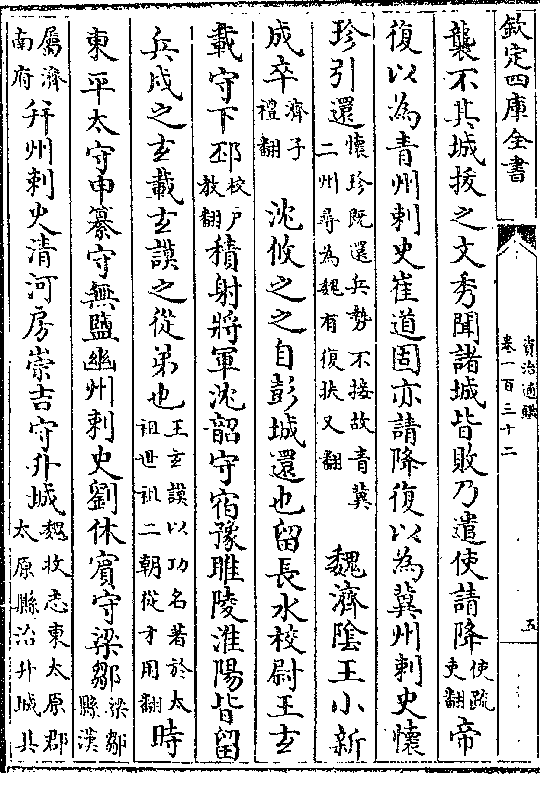 欽定四庫全書
資治通鑑
卷一百三十二
五
襲不其城拔之文秀聞諸城皆敗乃遣使請降使疏吏翻帝
復以為青州刺史崔道固亦請降復以為冀州刺史懷
珍引還懷珍既還兵勢不接故青冀二州尋為魏有復扶又翻 魏濟陰王小新
成卒濟子禮翻 沈攸之之自彭城還也留長水校尉王玄
載守下邳校戶教翻積射將軍沈韶守宿豫睢陵淮陽皆留
兵戍之玄載玄謨之從弟也王玄謨以功名著於太祖世祖二朝從才用翻時
東平太守申纂守無鹽幽州刺史劉休賓守梁鄒梁鄒縣漢
屬濟南府并州刺史清河房崇吉守升城魏收志東太原郡太原縣治升城其